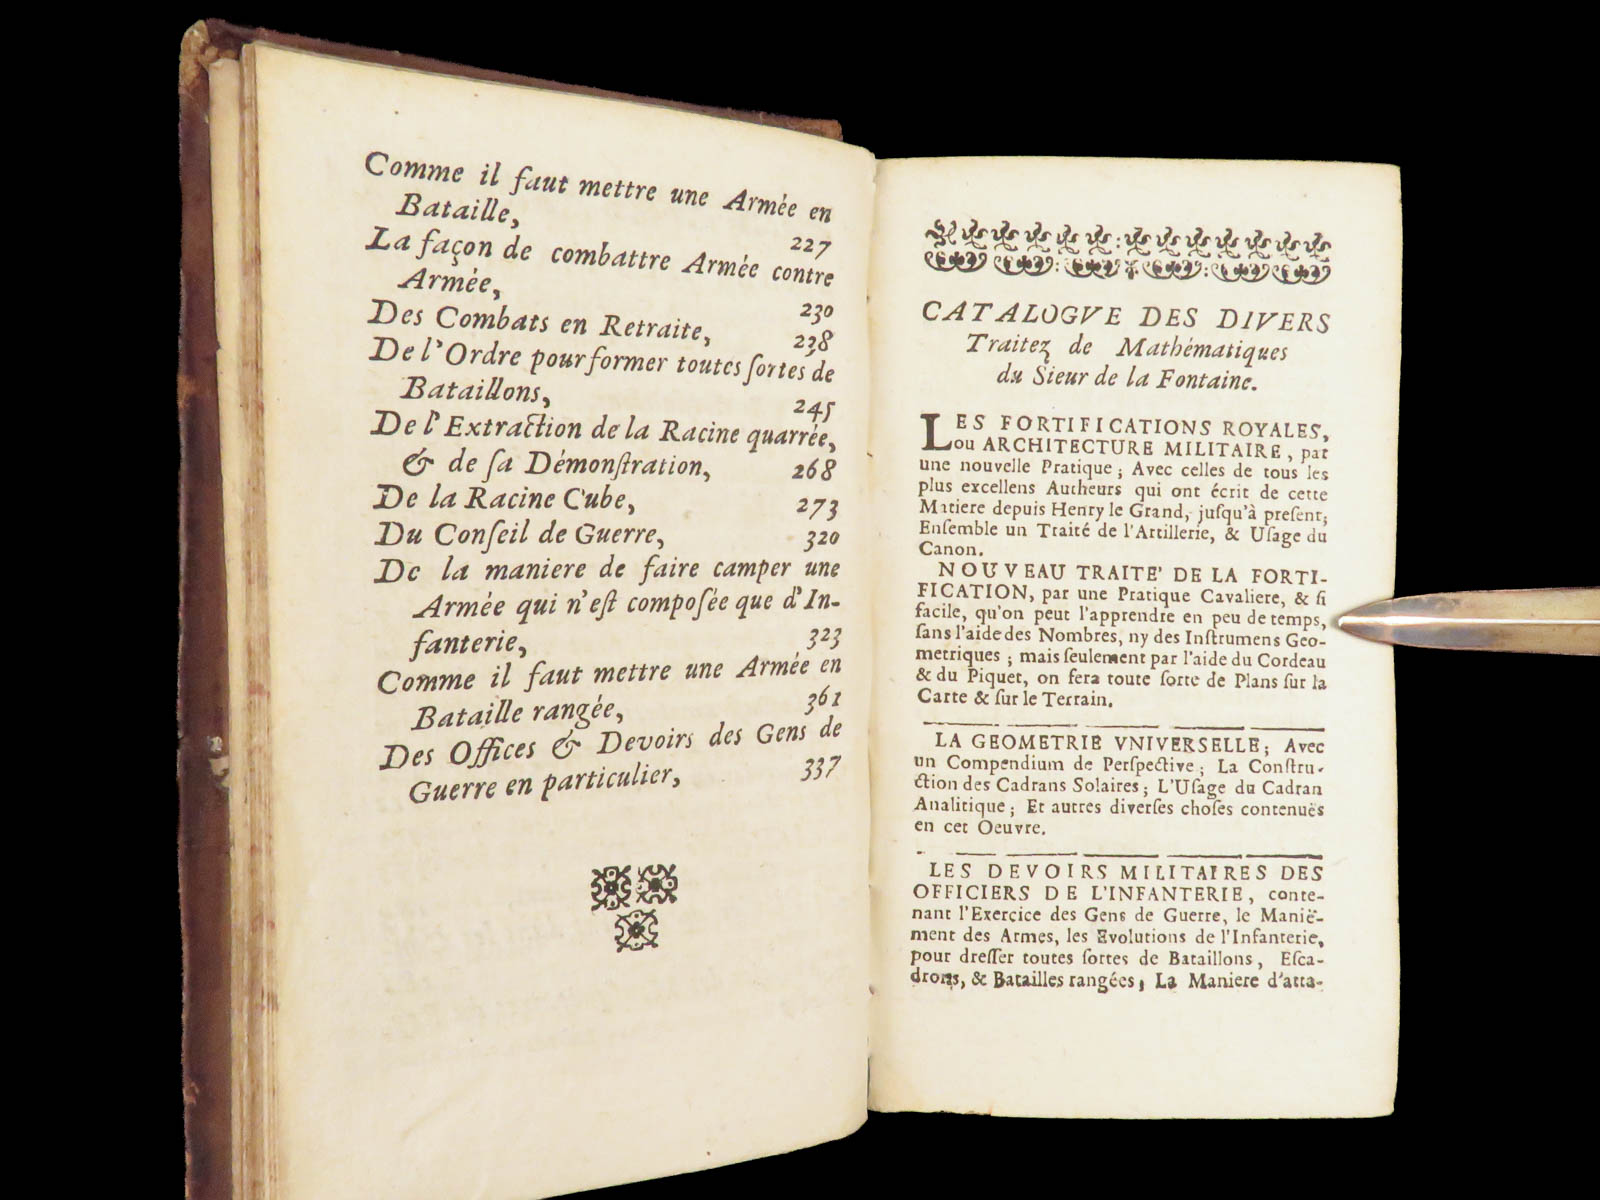 Comme il faut mettre une Armée en
Bataille,
227
La façon de combattre Armée contre
Armée,
230
Des Combats en Retraite,
238
De l'Ordre pour former toutes ſortes de
Bataillons,
245
De l'Extraction de la Racine quarrée,
& de ſa Démonſtration,
268
De la Racine Cube,
273
Du Conſeil de Guerre,
320
De la maniere de faire camper une
Armée qui n'eſt compoſée que d'In-
fanterie,
323
Comme il faut mettre une Armée en
Bataille rangée,
361
Des Offices & Devoirs des Gens de
Guerre en particulier,
337
CATALOGVE DES DIVERS
Traitez de Mathématiques
du Sieur de la Fontaine.
LES FORTIFICATIONS ROYALES,
ou ARCHITECTURE MILITAIRE, par
une nouvelle Pratique; Avec celles de tous les
plus excellens Autheurs qui ont écrit de cette
Matiere depuis Henry le Grand, juſqu'à preſent;
Enſemble un Traité de l'Artillerie, & Uſage du
Canon.
NOUVEAU TRAITE' DE LA FORTI-
FICATION, par une Pratique Cavaliere, & ſi
facile, qu'on peut l'apprendre en peu de temps,
ſans l'aide des Nombres, ny des Inſtrumens Geo-
metriques; mais ſeulement par l'aide du Cordeau
& du Piquet, on fera toute ſorte de Plans ſur la
Carte & ſur le Terrain.
LA GEOMETRIE VNIVERSELLE; Avec
un Compendium de Perſpective; La Conſtru-
ction des Cadrans Solaires; L'Uſage du Cadran
Analitique; Et autres diverſes choſes contenuës
en cet Oeuvre.
LES DEVOIRS MILITAIRES DES
OFFICIERS DE L'INFANTERIE, conte-
nant l'Exercice des Gens de Guerre, le Manië-
ment des Armes, les Evolutions de l'Infanterie,
pour dreſſer toutes ſortes de Bataillons, Eſca-
drons, & Batailles rangées; La Maniere d'atta-